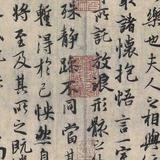 也夫人之相與
取諸懷抱悟言
所託放浪形骸之
殊靜躁不同當其
暫得於己怏然自
將至及其所之既